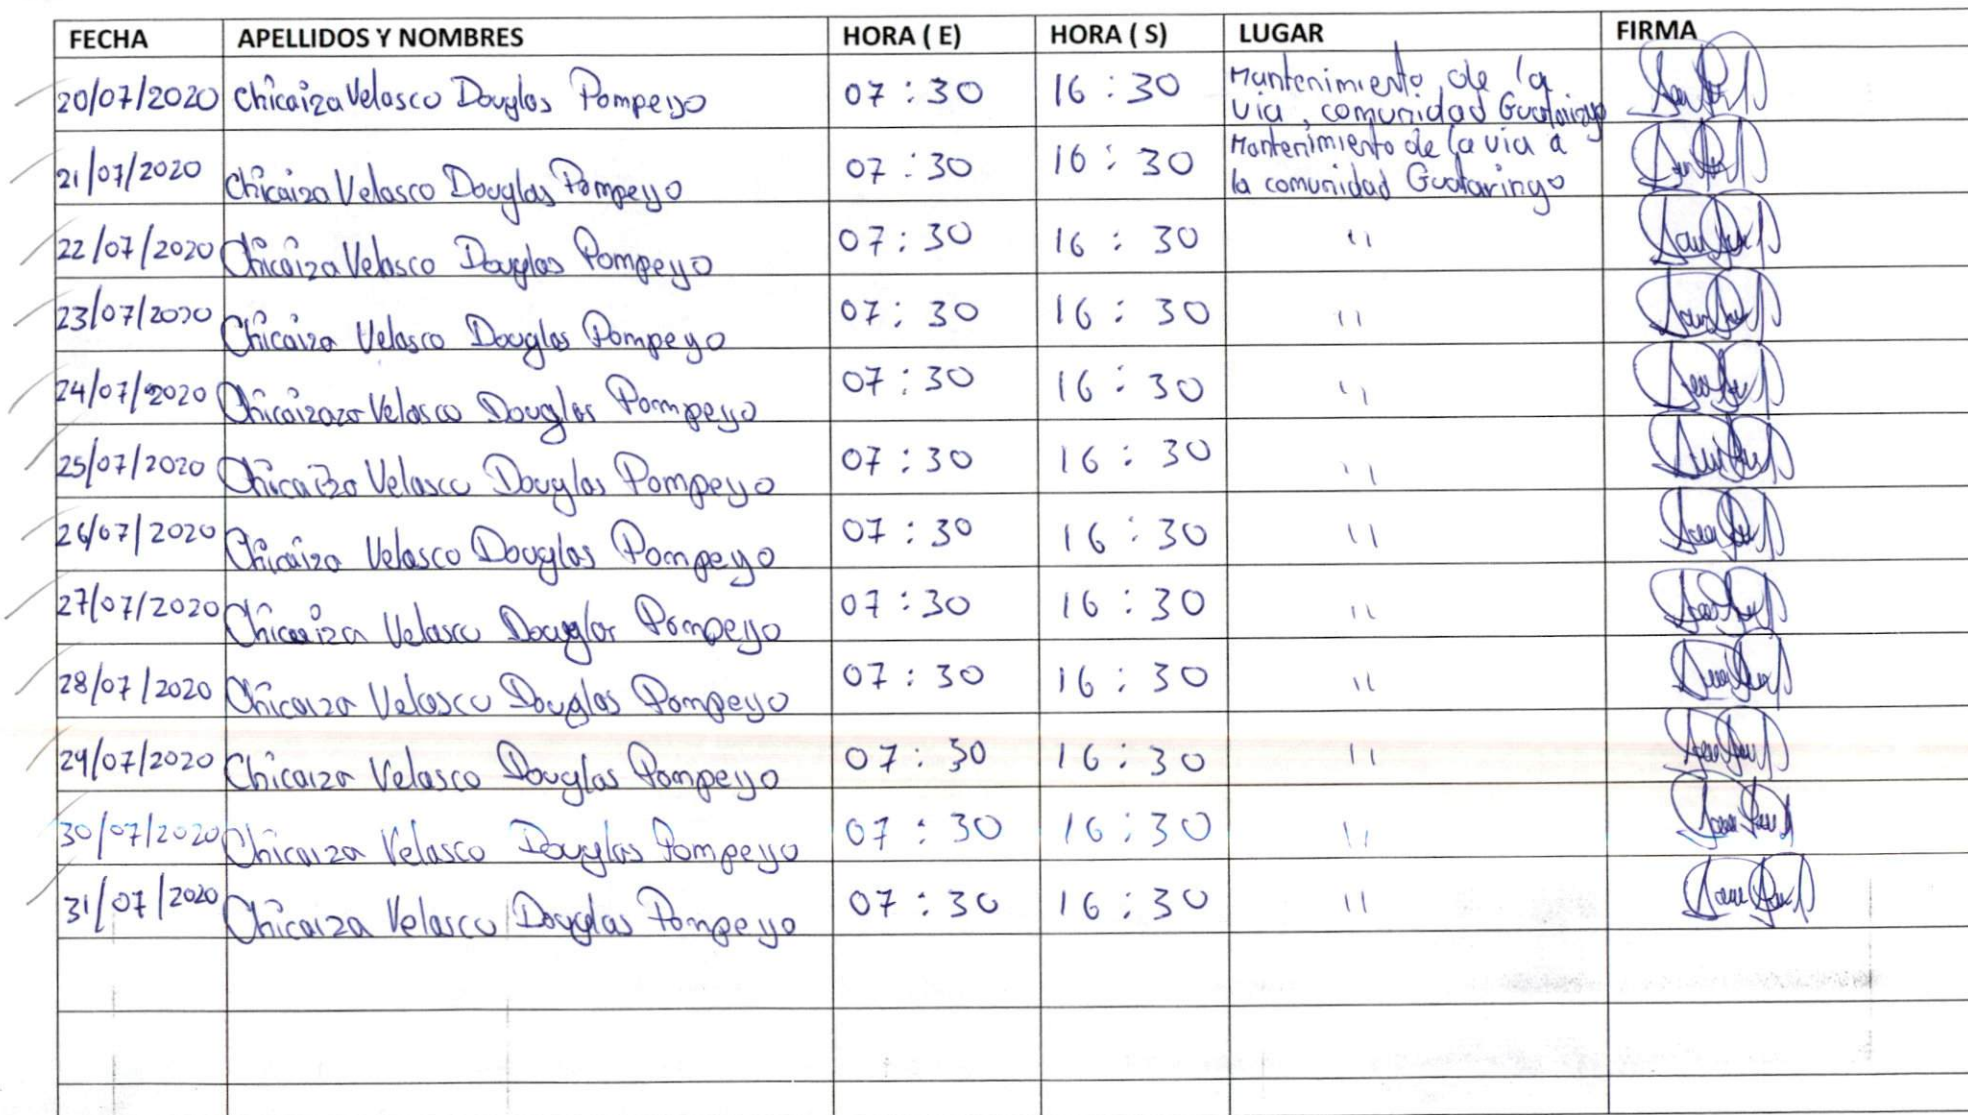 FECHA APELLIDOS Y NOMBRES HORA ( E) HORA ( S) LUGAR FIRMA
20/07/2020 Chicaiza Velasco Douglas Pompeyo 07 : 30 16 : 30 Mantenimiento de la
via, comunidad
21/07/2020 Chicaiza Velasco Douglas Pompeyo 07 : 30 16 : 30 Mantenimiento de la via a
la comunidad Guataringo
22/07/2020 Chicaiza Velasco Douglas Pompeyo 07 : 30 16 : 30 "
23/07/2020 Chicaiza Velasco Douglas Pompeyo 07 : 30 16 : 30 "
24/07/2020 Chicaizaza Velasco Douglas Pompeyo 07 : 30 16 : 30 "
25/07/2020 Chicaiza Velasco Douglas Pompeyo 07 : 30 16 : 30 "
26/07/2020 Chicaiza Velasco Douglas Pompeyo 07 : 30 16 : 30 "
27/07/2020 Chicaiza Velasco Douglas Pompeyo 07 : 30 16 : 30 "
28/07/2020 Chicaiza Velasco Douglas Pompeyo 07 : 30 16 : 30 "
29/07/2020 Chicaiza Velasco Douglas Pompeyo 07 : 30 16 : 30 "
30/07/2020 Chicaiza Velasco Douglas Pompeyo 07 : 30 16 : 30 "
31/07/2020 Chicaiza Velasco Douglas Pompeyo 07 : 30 16 : 30 "